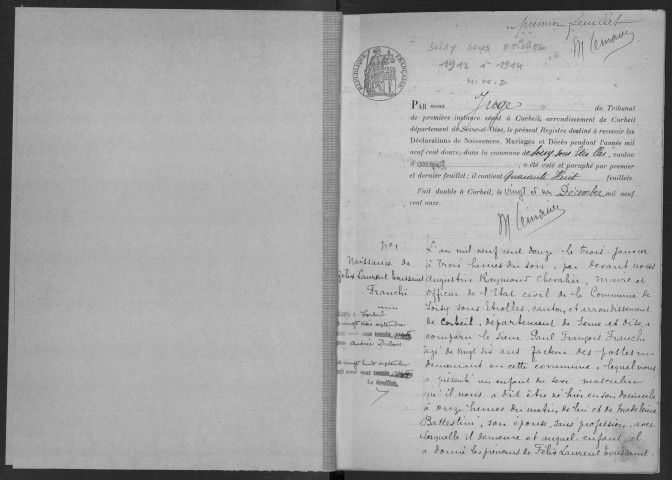 premier feuillet
M Lemaire
Soisy sous Etiolles
1912 à 1914
N. M. D.
RÉPUBLIQUE FRANÇAISE
PAR nous Juge du Tribunal
de première instance séant à Corbeil, arrondissement de Corbeil
département de Seine-et-Oise, le présent Registre destiné à recevoir les
Déclarations de Naissances, Mariages et Décès pendant l'année mil
neuf cent douze, dans la commune de Soisy sous Etiolles, canton
d , a été coté et paraphé par premier
et dernier feuillet; il contient Quarante Huit feuillets.
Fait double à Corbeil, le vingt et un Décembre mil neuf
cent onze.
M Lemaire
N° 1
Naissance de
Félix Laurent Toussaint
Franchi
Corbeil
vingt septembre
mil neuf cent trente
Andrée
vingt septembre
mil neuf cent trente
Le Greffier,
L'an mil neuf cent douze le trois janvier
à trois heures du soir, par devant nous
Augustin Raymond Chevalier, Maire et
officier de l'Etat civil de la Commune de
Soisy sous Etiolles, canton et arrondissement
de Corbeil, département de Seine et Oise a
comparu le sieur Paul François Franchi
âgé de vingt six ans facteur des postes
demeurant en cette commune, lequel nous
a présenté un enfant de sexe masculin
qu'il nous a dit être né hier en son domicile
à onze heures du matin, de lui et de Madeleine
Battestini, son épouse, sans profession, avec
laquelle il demeure et auquel enfant il
a donné les prénoms de Félix Laurent Toussaint.